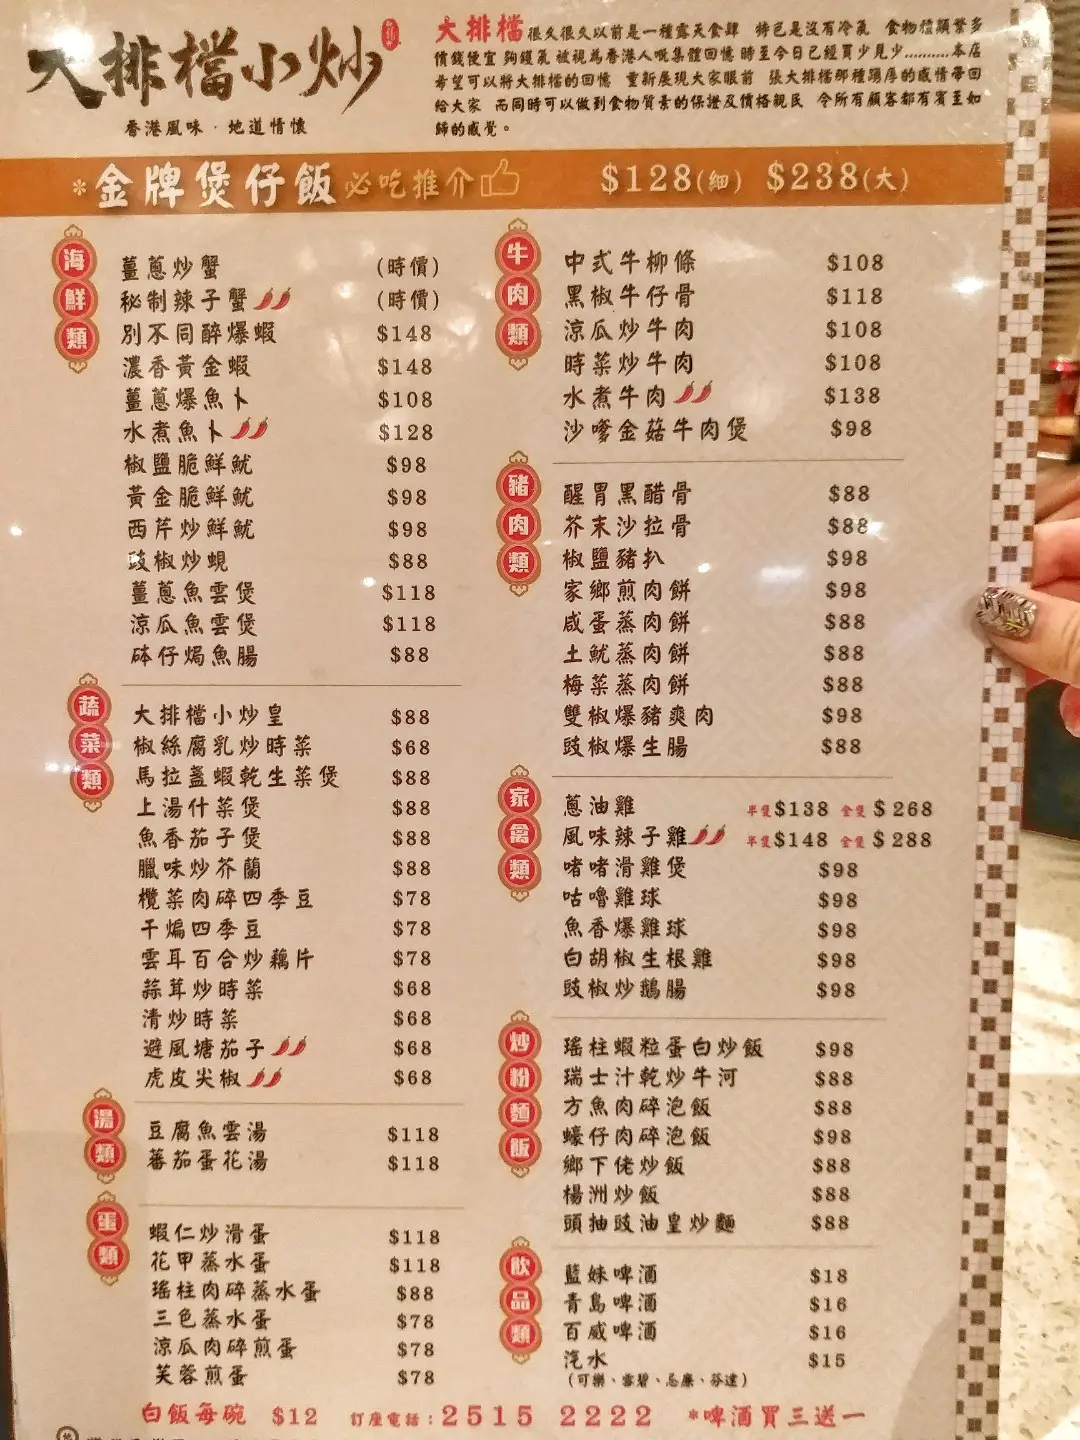 大排檔小炒
香港風味·地道情懷
大排檔很久很久以前是一種露天食肆 特色是沒有冷氣 食物種類繁多
價錢便宜 夠鑊氣 被視為香港人嘅集體回憶 時至今日已經買少見少..........本店
希望可以將大排檔的回憶 重新展現大家眼前 張大排檔那種踴厚的感情帶回
給大家 而同時可以做到食物質素的保證及價格親民 令所有顧客都有賓至如
歸的感覺。
*金牌煲仔飯 必吃推介 $128(細) $238(大)
海鮮類
薑蔥炒蟹 (時價)
秘制辣子蟹 (時價)
別不同醉爆蝦 $148
濃香黃金蝦 $148
薑蔥爆魚卜 $108
水煮魚卜 $128
椒鹽脆鮮魷 $98
黃金脆鮮魷 $98
西芹炒鮮魷 $98
豉椒炒蜆 $88
薑蔥魚雲煲 $118
涼瓜魚雲煲 $118
砵仔焗魚腸 $88
蔬菜類
大排檔小炒皇 $88
椒絲腐乳炒時菜 $68
馬拉盞蝦乾生菜煲 $88
上湯什菜煲 $88
魚香茄子煲 $88
臘味炒芥蘭 $88
欖菜肉碎四季豆 $78
干煸四季豆 $78
雲耳百合炒藕片 $78
蒜茸炒時菜 $68
清炒時菜 $68
避風塘茄子 $68
虎皮尖椒 $68
湯類
豆腐魚雲湯 $118
蕃茄蛋花湯 $118
蛋類
蝦仁炒滑蛋 $118
花甲蒸水蛋 $118
瑤柱肉碎蒸水蛋 $88
三色蒸水蛋 $78
涼瓜肉碎煎蛋 $78
芙蓉煎蛋 $78
牛肉類
中式牛柳條 $108
黑椒牛仔骨 $118
涼瓜炒牛肉 $108
時菜炒牛肉 $108
水煮牛肉 $138
沙嗲金菇牛肉煲 $98
豬肉類
醒胃黑醋骨 $88
芥末沙拉骨 $88
椒鹽豬扒 $98
家鄉煎肉餅 $98
咸蛋蒸肉餅 $88
土魷蒸肉餅 $88
梅菜蒸肉餅 $88
雙椒爆豬爽肉 $98
豉椒爆生腸 $88
家禽類
蔥油雞 半隻$138 全隻$268
風味辣子雞 半隻$148 全隻$288
啫啫滑雞煲 $98
咕嚕雞球 $98
魚香爆雞球 $98
白胡椒生根雞 $98
豉椒炒鵝腸 $98
炒粉麵飯
瑤柱蝦粒蛋白炒飯 $98
瑞士汁乾炒牛河 $88
方魚肉碎泡飯 $88
蠔仔肉碎泡飯 $98
鄉下佬炒飯 $88
楊洲炒飯 $88
頭抽豉油皇炒麵 $88
飲品類
藍妹啤酒 $18
青島啤酒 $16
百威啤酒 $16
汽水 $15
(可樂、雪碧、忌廉、芬達)
白飯每碗 $12 訂座電話：2515 2222 *啤酒買三送一